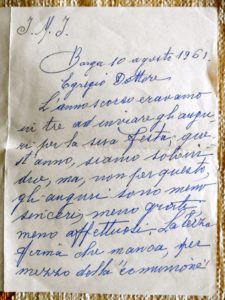 J. M. J.
Barga 10 agosto 1961.
Egregio Dottore
L'anno scorso eravamo
in tre ad inviare gli augu-
ri per la sua festa: que-
st'anno, siamo soltanto
due, ma, non per questo,
gli auguri sono meno
sinceri, meno grati
meno affettuosi. La terza
firma che manca, per
mezzo della "comunione